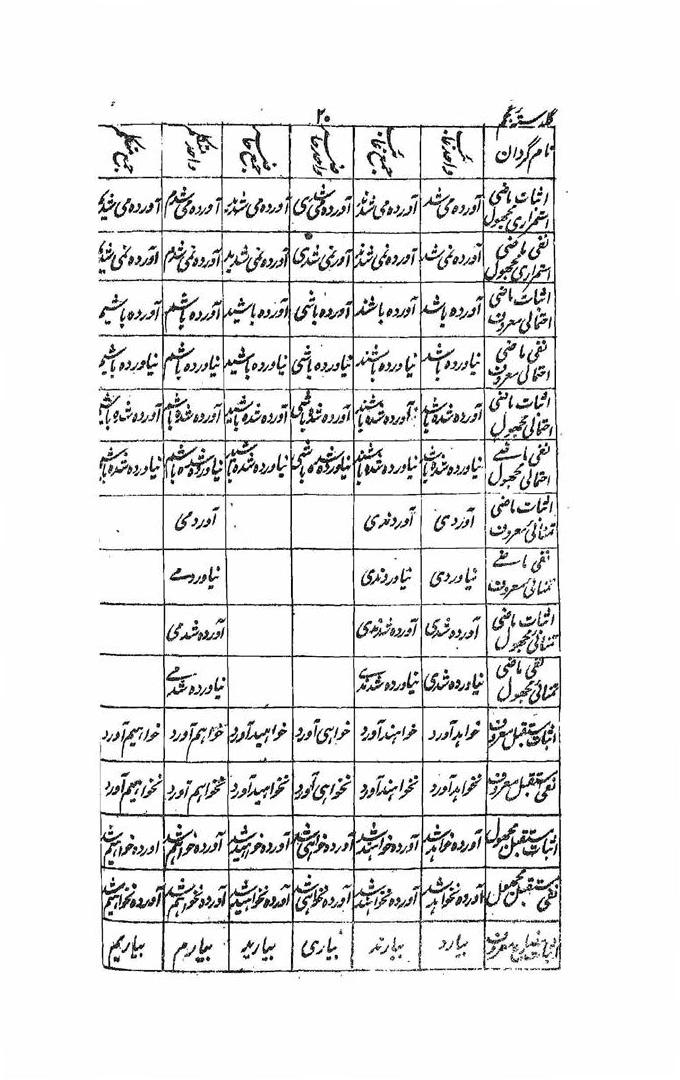 گلدستہ عجم
۲۰
نام گردان واحد غائب جمع غائب واحد حاضر جمع حاضر واحد متکلم جمع متکلم
اثبات ماضی استمراری مجہول آوردہ می شد آوردہ می شدند آوردہ می شدی آوردہ می شدید آوردہ می شدم آوردہ می شدیم
نفی ماضی استمراری مجہول آوردہ نمی شد آوردہ نمی شدند آوردہ نمی شدی آوردہ نمی شدید آوردہ نمی شدم آوردہ نمی شدیم
اثبات ماضی احتمالی معروف آوردہ باشد آوردہ باشند آوردہ باشی آوردہ باشید آوردہ باشم آوردہ باشیم
نفی ماضی احتمالی معروف نیاوردہ باشد نیاوردہ باشند نیاوردہ باشی نیاوردہ باشید نیاوردہ باشم نیاوردہ باشیم
اثبات ماضی احتمالی مجہول آوردہ شدہ باشد آوردہ شدہ باشند آوردہ شدہ باشی آوردہ شدہ باشید آوردہ شدہ باشم آوردہ شدہ باشیم
نفی ماضی احتمالی مجہول نیاوردہ شدہ باشد نیاوردہ شدہ باشند نیاوردہ شدہ باشی نیاوردہ شدہ باشید نیاوردہ شدہ باشم نیاوردہ شدہ باشیم
اثبات ماضی تمنائی معروف آوردی آوردندی آوردمی
نفی ماضی تمنائی معروف نیاوردی نیاوردندی نیاوردمے
اثبات ماضی تمنائی مجہول آوردہ شدی آوردہ شدندی آوردہ شدمی
نفی ماضی تمنائی مجہول نیاوردہ شدی نیاوردہ شدندے نیاوردہ شدمے
اثبات مستقبل معروف خواہد آورد خواہند آورد خواہی آورد خواہید آورد خواہم آورد خواہیم آورد
نفی مستقبل معروف نخواہد آورد نخواہند آورد نخواہی آورد نخواہید آورد نخواہم آورد نخواہیم آورد
اثبات مستقبل مجہول آوردہ خواہد شد آوردہ خواہند شد آوردہ خواہی شد آوردہ خواہید شد آوردہ خواہم شد آوردہ خواہیم شد
نفی مستقبل مجہول آوردہ نخواہد شد آوردہ نخواہند شد آوردہ نخواہی شد آوردہ نخواہید شد آوردہ نخواہم شد آوردہ نخواہیم شد
اثبات مضارع معروف بیارد بیارند بیاری بیارید بیارم بیاریم